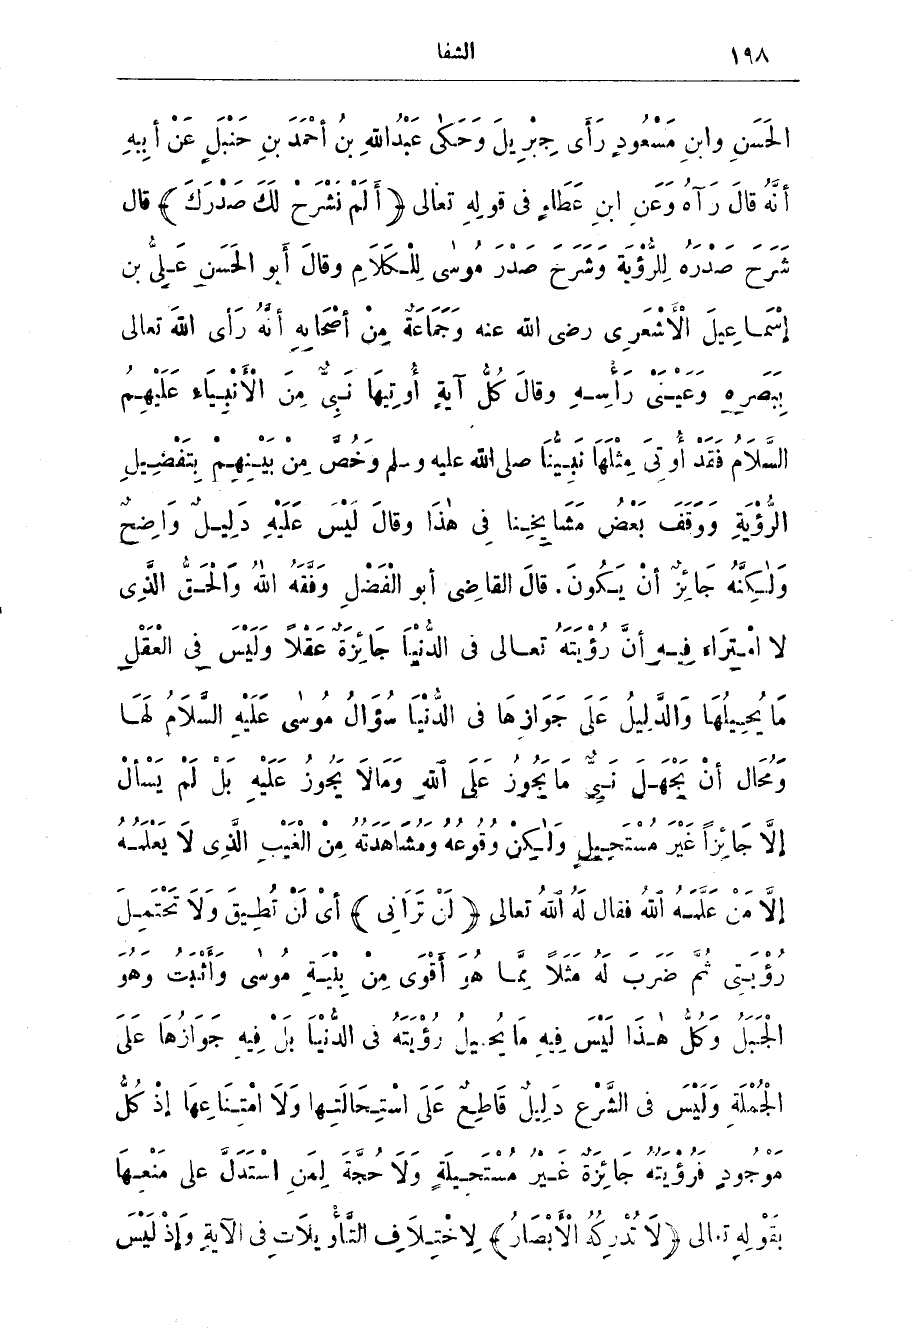 ١٩٨ الشفا
الحَسَنِ وابنِ مَسْعُودٍ رَأَى جِبْرِيلَ وَحَكَى عَبْدُ اللهِ بنُ أَحْمَدَ بنِ حَنْبَلٍ عَنْ أَبِيهِ
أَنَّهُ قالَ رَآهُ وَعَنِ ابنِ عَطَاءٍ فى قولِهِ تعالى ﴿ أَلَمْ نَشْرَحْ لَكَ صَدْرَكَ ﴾ قال
شَرَحَ صَدْرَهُ لِلرُّؤْيَةِ وَشَرَحَ صَدْرَ مُوسَى لِلْكَلَامِ وقالَ أَبو الحَسَنِ عَلِىُّ بن
إسْمَاعِيلَ الْأَشْعَرِى رضى الله عنه وَجَمَاعَةٌ مِنْ أَصْحَابِهِ أَنَّهُ رَأَى اللهَ تعالى
بِبَصَرِهِ وَعَيْنَىْ رَأْسِهِ وقالَ كُلُّ آيَةٍ أُوتِيَهَا نَبِىٌّ مِنَ الْأَنْبِيَاءِ عَلَيْهِمُ
السَّلَامُ فَقَدْ أُوتِىَ مِثْلَهَا نَبِيُّنَا صلى الله عليه وسلم وَخُصَّ مِنْ بَيْنِهِمْ بِتَفْضِيلِ
الرُّؤْيَةِ وَوَقَفَ بَعْضُ مَشَايِخِنا فى هٰذَا وقالَ لَيْسَ عَلَيْهِ دَلِيلٌ وَاضِحٌ
وَلٰكِنَّهُ جَائِزٌ أَنْ يَكُونَ. قالَ القاضِى أبو الْفَضْلِ وَفَّقَهُ اللهُ وَالْحَقُّ الَّذِى
لا امْتِرَاءَ فِيهِ أَنَّ رُؤْيَتَهُ تعالى فى الدُّنْيَا جَائِزَةٌ عَقْلاً وَلَيْسَ فِى العَقْلِ
مَا يُحِيلُهَا وَالدَّلِيلُ عَلَى جَوَازِهَا فى الدُّنْيَا سُؤَالُ مُوسَى عَلَيْهِ السَّلَامُ لَهَا
وَمُحَالٌ أَنْ يَجْهَلَ نَبِىٌّ مَا يَجُوزُ عَلَى اللهِ وَمَالَا يَجُوزُ عَلَيْهِ بَلْ لَمْ يَسْأَلْ
إلَّا جَائِزاً غَيْرَ مُسْتَحِيلٍ وَلٰكِنْ وُقُوعُهُ وَمُشَاهَدَتُهُ مِنْ الغَيْبِ الَّذِى لَا يَعْلَمُهُ
إلَّا مَنْ عَلَّمَهُ اللهُ فقال لَهُ اللهُ تعالى ﴿ لَنْ تَرَانِى ﴾ أَىْ لَنْ تُطِيقَ وَلَا تَحْتَمِلَ
رُؤْيَتِى ثُمَّ ضَرَبَ لَهُ مَثَلاً مِمَّا هُوَ أَقْوَى مِنْ بِنْيَةِ مُوسَى وَأَثْبَتُ وَهُوَ
الْجَبَلُ وَكُلُّ هٰذَا لَيْسَ فِيهِ مَا يُحِيلُ رُؤْيَتَهُ فى الدُّنْيَا بَلْ فِيهِ جَوَازُهَا عَلَى
الْجُمْلَةِ وَلَيْسَ فى الشَّرْعِ دَلِيلٌ قَاطِعٌ عَلَى اسْتِحَالَتِهَا وَلَا امْتِنَاعِهَا إذْ كُلُّ
مَوْجُودٍ فَرُؤْيَتُهُ جَائِزَةٌ غَيْرُ مُسْتَحِيلَةٍ وَلَا حُجَّةَ لِمَنِ اسْتَدَلَّ عَلى مَنْعِهَا
بِقَوْلِهِ تعالى ﴿ لَا تُدْرِكُهُ الْأَبْصَارُ ﴾ لِاخْتِلَافِ التَّأْوِيلَاتِ فِى الآيَةِ وَإِذْ لَيْسَ